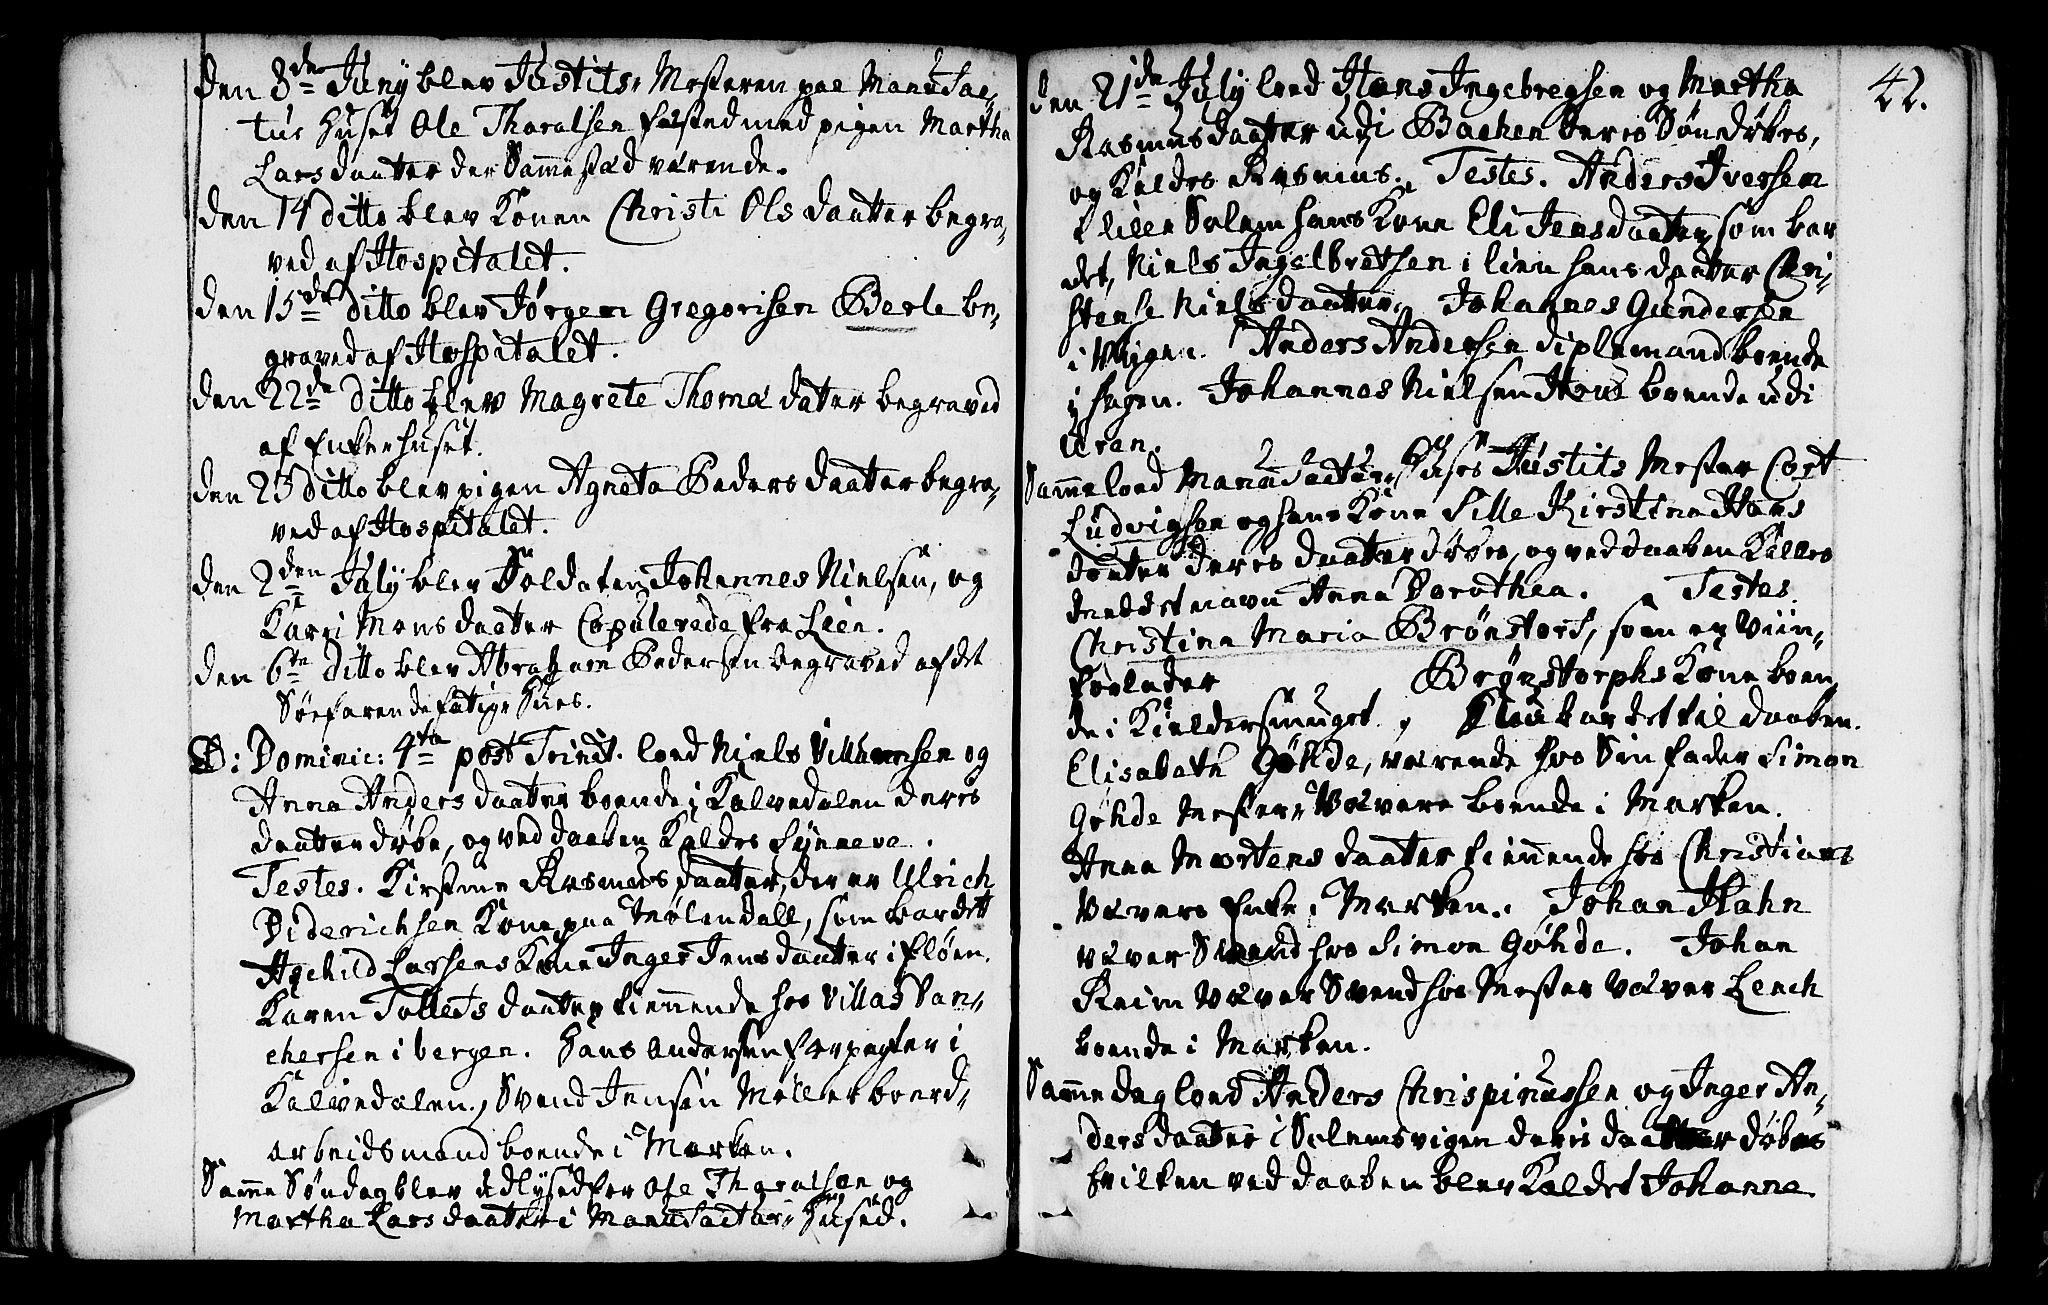 Den 8de Juny blev Justits-Mesteren paa Manufac-
tur Huset Ole Tharalsen fæsted med pigen Martha
Larsdaatter der Sammestæd værende.
Den 14 ditto blev Konen Christi Olsdaatter begra-
ved af Hospitalet.
Den 15de ditto blev Jörgen Gregorisen Berle be-
graved af Hospitalet.
Den 22de ditto blev Magrete Thomædater begraved
af Enkerhuset.
Den 23 ditto blev pigen Agneta Pedersdaatter begra-
ved af Hospitalet.
Den 2den July blev Soldaten Johannes Nielsen, og
Karri Monsdaatter Copulerede fra Leen.
Den 6te ditto blev Abraham Pedersen begraved af det
Söefarende fattige Huus.
D: Dominic: 4ta post Trinit. loed Niels Villumsen og
Anna Andersdaatter boende i Kalvedalen deres
daatter döbe, og ved daaben Kaldes Synneve.
Testes. Kirstine Rasmusdaatter, der er Ulrich
Diderichsen Kone paa Mölendall, som bar det
Aschild Larsens Kone Inger Jensdaatter i Flöen.
Karen Tollefsdaatter tiennende hos Villas Dan-
chersen i bergen. Hans Andersen forpagter i
Kalvedalen, Svend Jensen Möller boend-
arbeidsmand boende i Marken.
Samme Söndag blev udlysed for Ole Tharalsen og
Martha Larsdaatter i Manufactur-Huset.
42.
Den 21de July loed Hans Ingebregsen og Martha
Rasmusdaatter udi Bachen deres Sön döbes,
og Kaldes Rasmus. Testes. Anders Iversen
Solem hans Kone Eli Jensdaatter, som bar
det, Niels Ingelbretsen i lien hans daatter Chri-
stense Nielsdaatter, Johannes Gundersen
i Vÿgen. Anders Andersen boende
i Hagen. Johannes Nielsen Houe boende udi
Uren.
Samme loed Manufactur-Huses Justits Mester Cort
Ludvigsen og hans Kone Sille Kirstine Hans
daatter deres daatter döbes, og ved daaben Kaldes
med det navn Anna Dorothea. Testes.
Christina Maria Brönstorf, som er Viin-
forlader Brönstorphs Kone boen-
de i Kieldersmuget, bar det til daaben.
Elisabeth Göhde, værende hos Sin fader Simon
Göhde Mester-Væver boende i Marken.
Anna Mortensdaatter tiennende hos Christians
Vævers Enke i Marken. Johan Hahn
væver Svend hos Simon Göhde. Johan
Reim Væver Svend hos Mester Væver Lench
boende i Marken.
Samme dag loed Anders Chrispinussen og Inger An-
dersdaatter i Solemsvigen deris daatter döbes
hvilken ved daaben blev Kaldet Johanna.